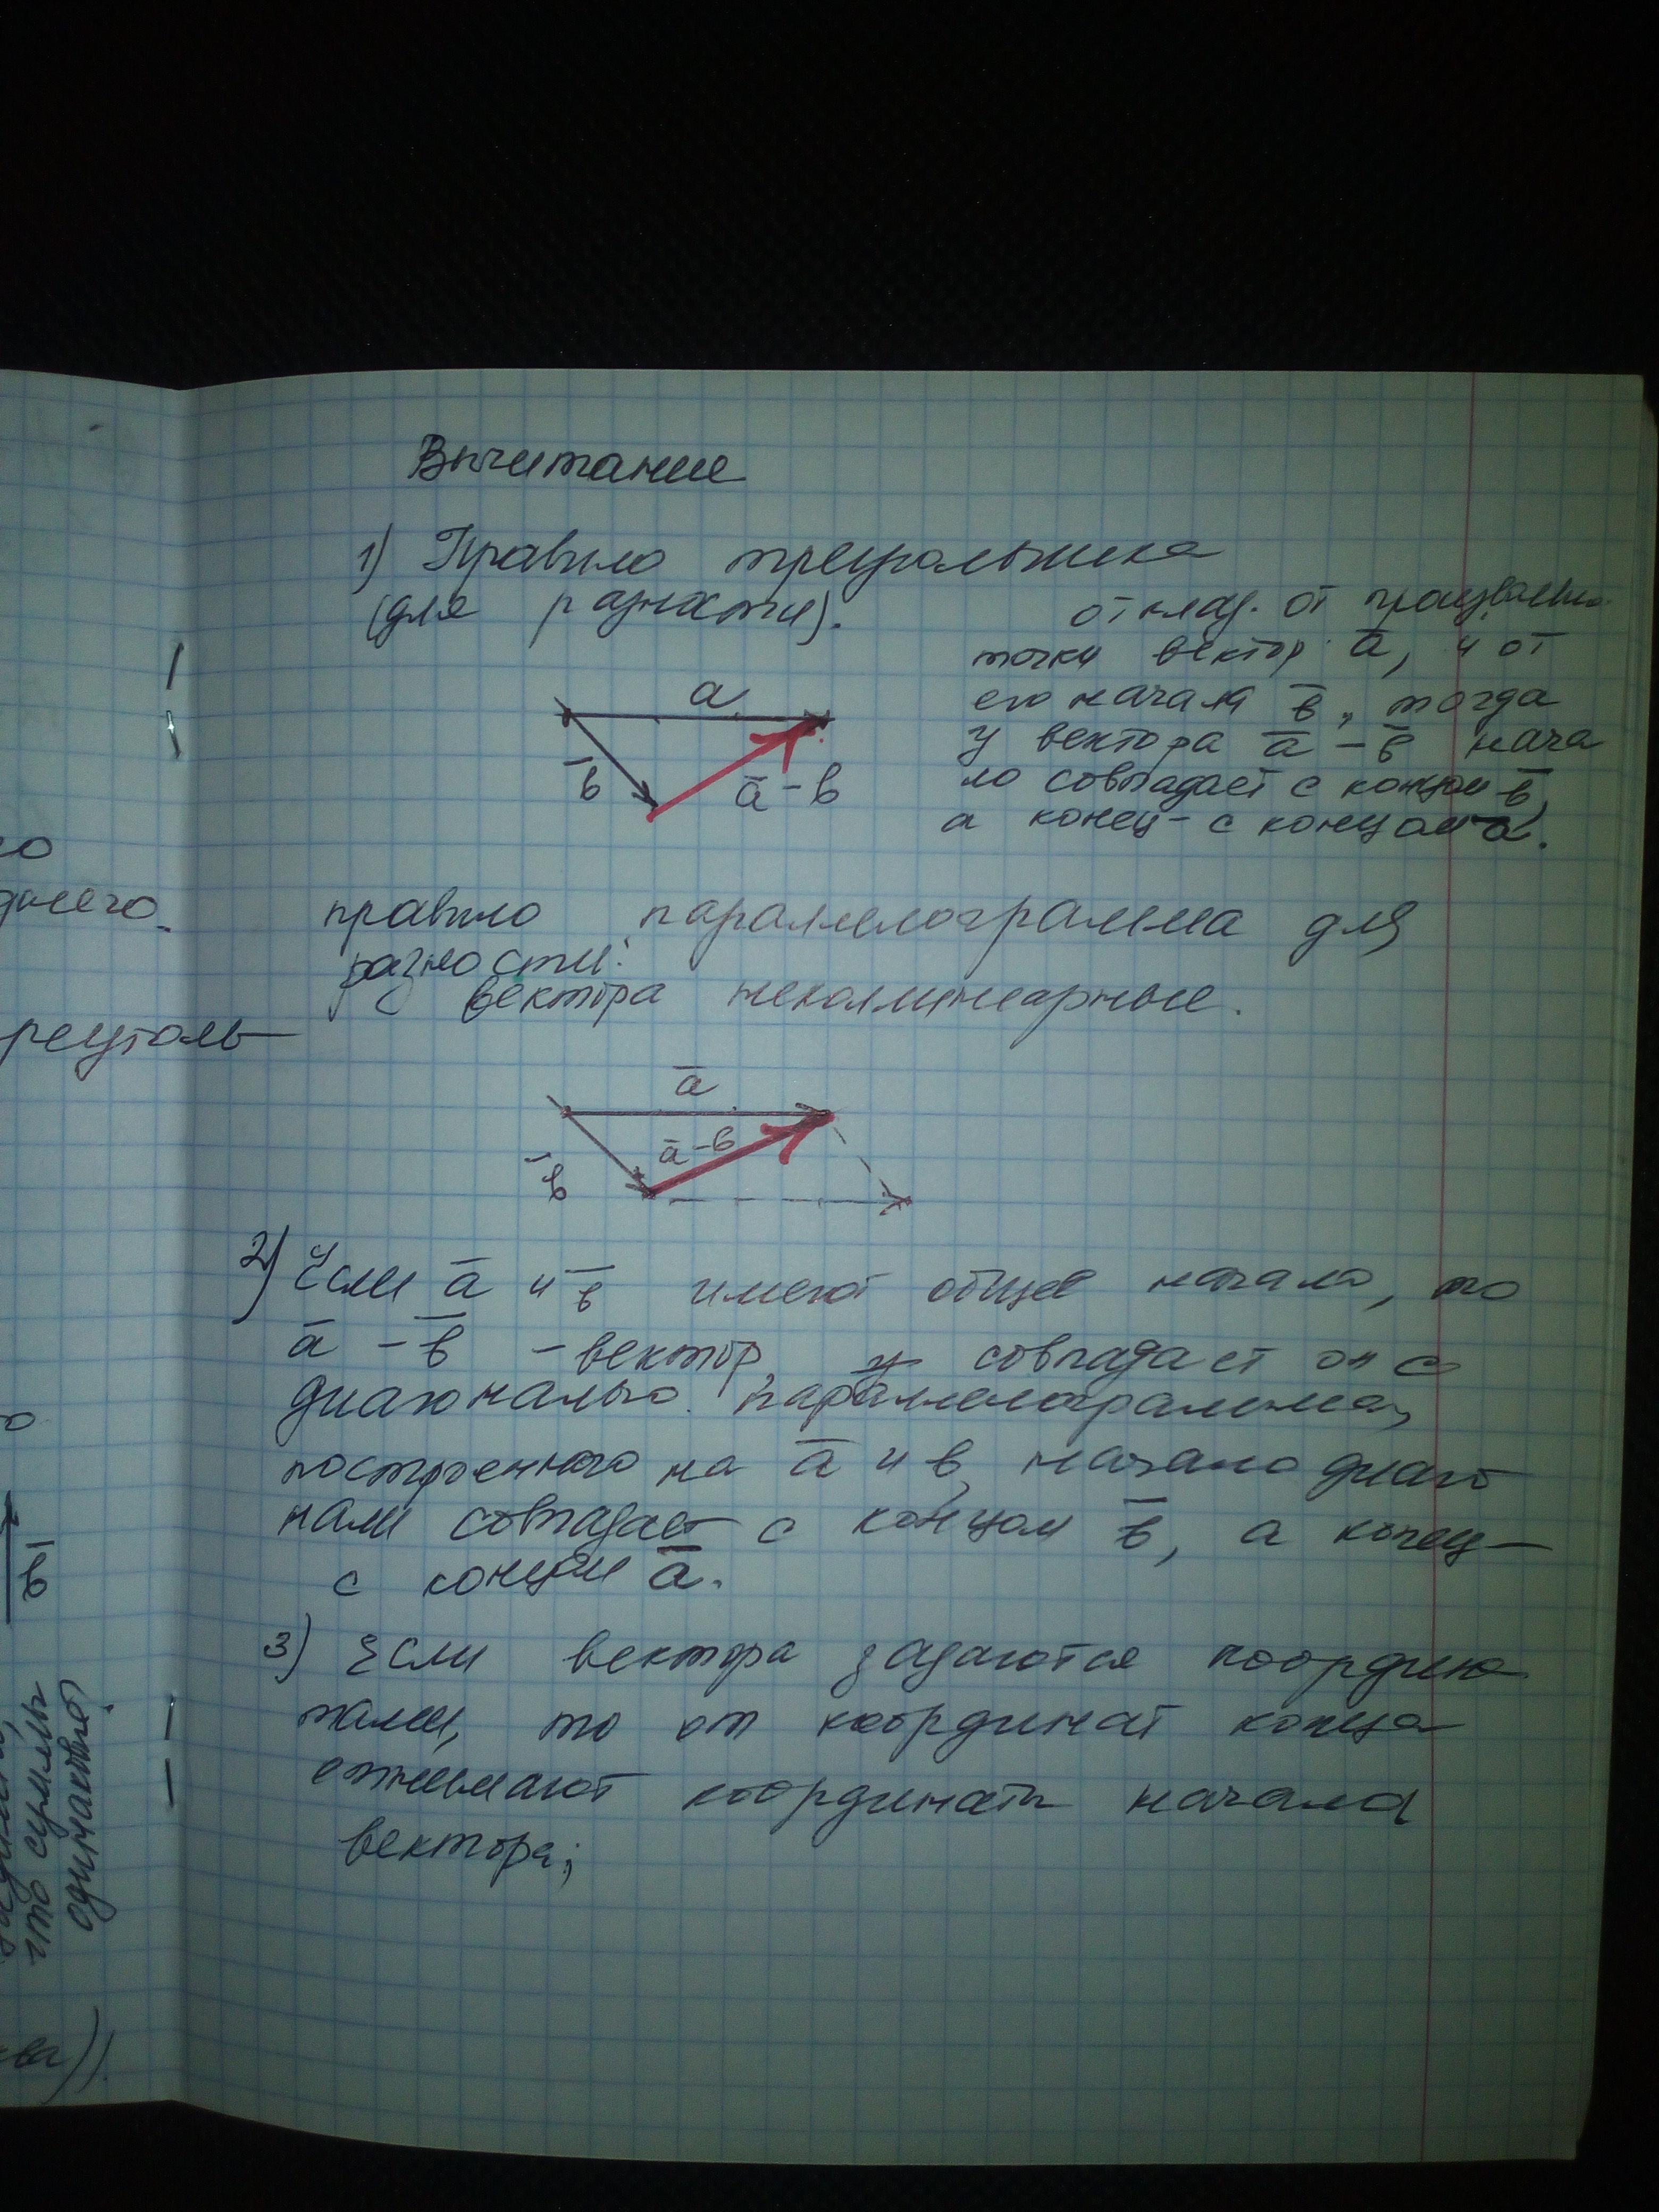 Вычитание
1) Правило треугольника
(для разности).
отклад. от произвольно
точки вектор a̅, и от
его начала b̅, тогда
у вектора a̅ - b̅ нача
ло совпадает с концом b̅,
а конец - с концом a̅.
a
b̅
a̅ - b
правило параллелограмма для
разности:
вектора неколлинеарные.
a̅
a̅ - b
b̅
2) Если a̅ и b̅ имеют общее начало, то
a̅ - b̅ - вектор, совпадает он с
диагональю параллелограмма,
построенного на a̅ и b, начало диаго
нали совпадает с концом b̅, а конец -
с концом a̅.
3) Если вектора задаются координа
тами, то от координат конца
отнимают координаты начала
вектора;
далего
реуголь
что суммы
одинаковы